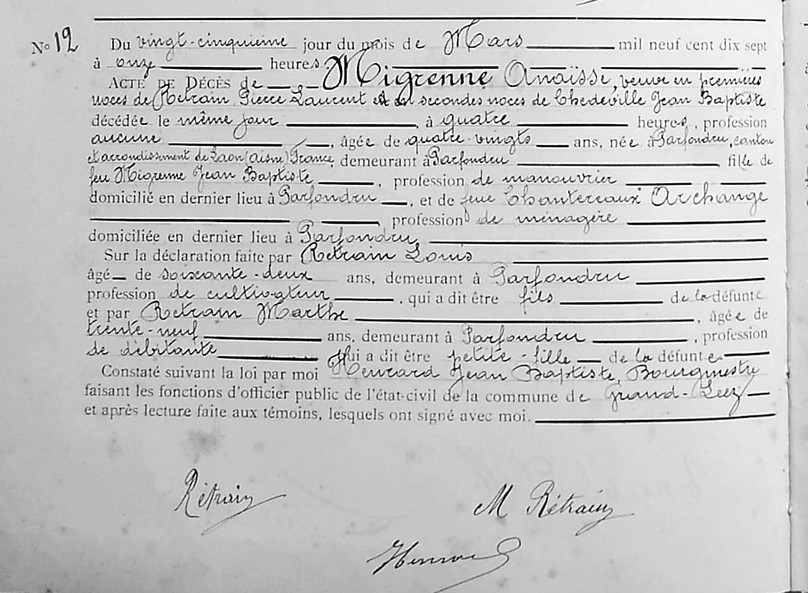 No 12 Du vingt-cinquième jour du mois de Mars mil neuf cent dix sept
à onze heures
ACTE DE DÉCÈS de Migrenne Anaïsse, veuve en premières
noces de Retrain Pierre Laurent et en secondes noces de Chedeville Jean Baptiste
décédée le même jour, à quatre heures, profession
aucune, âgée de quatre-vingts ans, née à Parfondru, canton
et arrondissement de Laon (Aisne) France, demeurant à Parfondru, fille de
feu Migrenne Jean Baptiste, profession de manouvrier
domicilié en dernier lieu à Parfondru, et de feue Chantereaux Archange
, profession de ménagère
domiciliée en dernier lieu à Parfondru
Sur la déclaration faite par Retrain Louis
âgé de soixante-deux ans, demeurant à Parfondru
profession de cultivateur, qui a dit être fils de la défunte
et par Retrain Marthe, âgée de
trente-neuf ans, demeurant à Parfondru, profession
de débitante qui a dit être petite-fille de la défunte
Constaté suivant la loi par moi Henrard Jean Baptiste, Bourgmestre
faisant les fonctions d'officier public de l'état-civil de la commune de Grand-Leez
et après lecture faite aux témoins, lesquels ont signé avec moi.
Rétrain M Rétrain